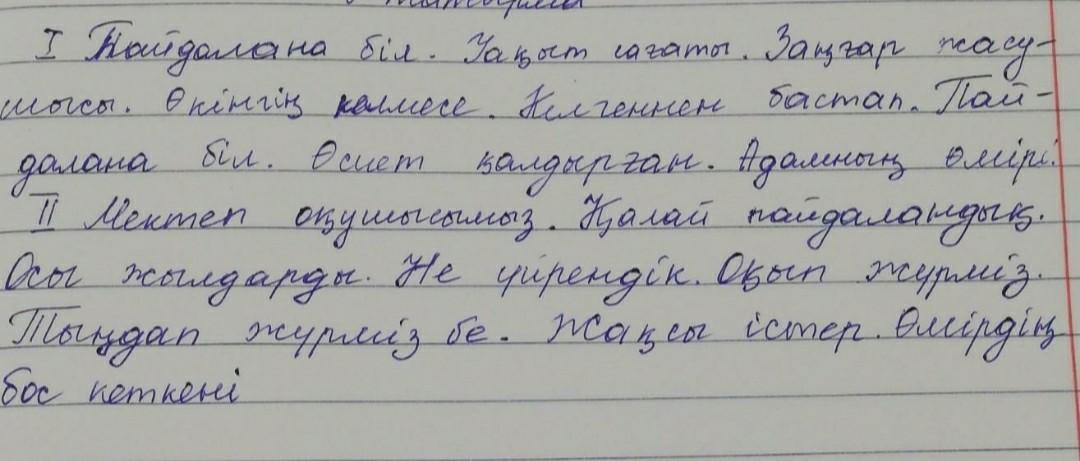 I Пайдалана біл. Уақыт сағаты. Заңғар жасу-
шысы. Өкінгің келмесе. Келгеннен бастап. Пай-
далана біл. Өсиет қалдырған. Адамның өмірі.
II Мектеп оқушысымыз. Қалай пайдаландық.
Осы жылдарды. Не үйрендік. Оқып жүрміз.
Тыңдап жүрміз бе. Жақсы істер. Өмірдің
бос кеткені